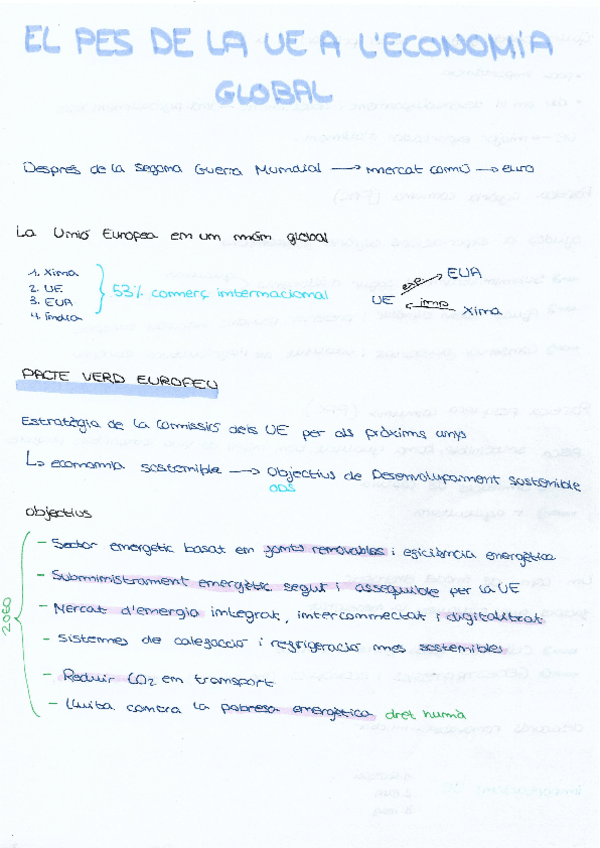 EL PES DE LA UE A L'ECONOMIA
GLOBAL
Després de la Segona Guerra Mundial → mercat comú → euro
La Unió Europea en un món global
1. Xina
2. UE
3. EUA
4. Índia
53% comerç internacional
UE exp. → EUA
← imp. Xina
PACTE VERD EUROPEU
Estratègia de la Comissió dels UE per als pròxims anys
↳ economia sostenible → Objectius de Desenvolupament Sostenible
ODS
objectius
2050
- Sector energètic basat en fonts renovables i eficiència energètica
- Subministrament energètic segur i assequible per la UE
- Mercat d'energia integrat, interconnectat i digitalitzat
- Sistemes de calefacció i refrigeració més sostenibles
- Reduir CO2 en transport
- Lluita contra la pobresa energètica dret humà